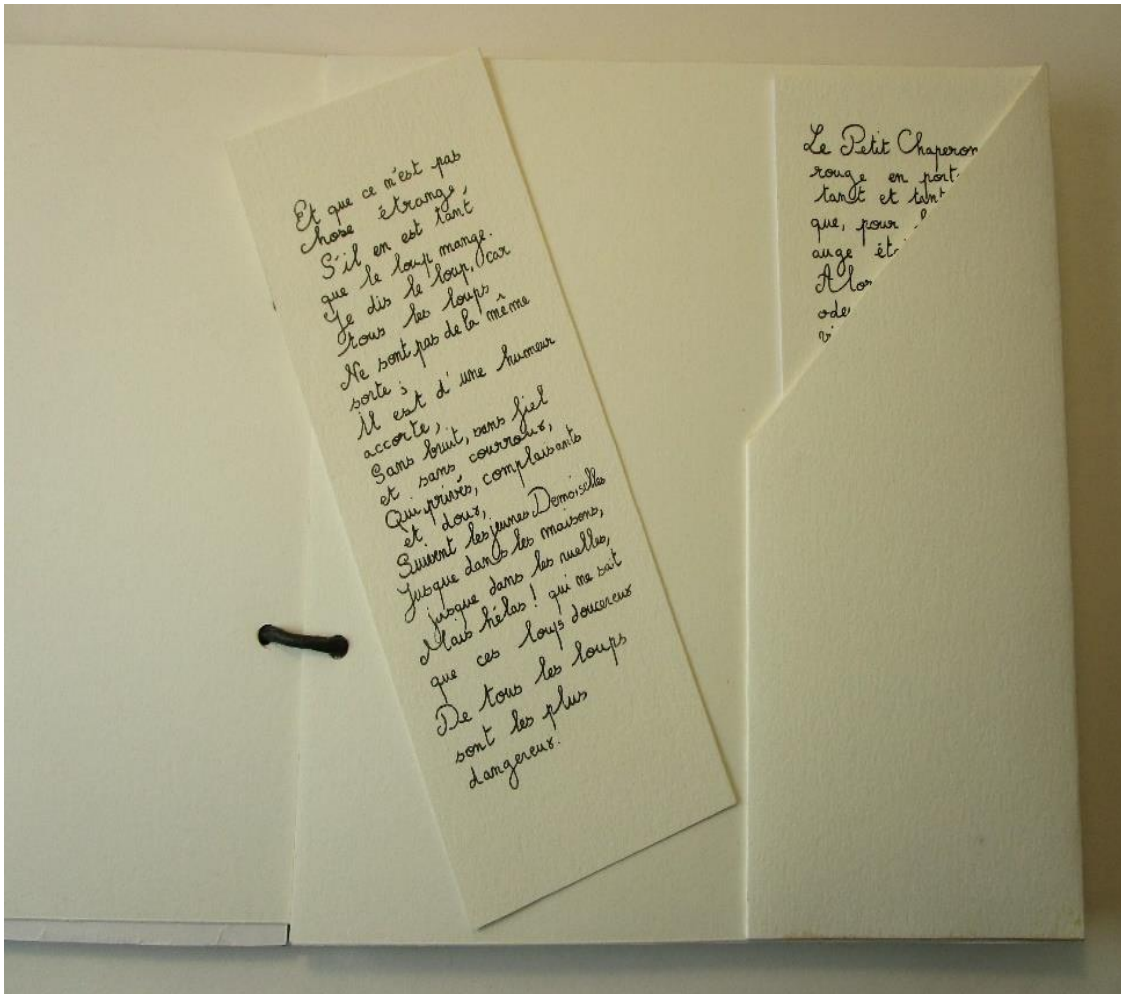 Et que ce n'est pas
chose étrange,
S'il en est tant
que le loup mange.
Je dis le loup, car
tous les loups
Ne sont pas de la même
sorte ;
Il est d'une humeur
accorte,
Sans bruit, sans fiel
et sans courroux,
Qui, privés, complaisants
et doux,
Suivent les jeunes Demoiselles
Jusque dans les maisons,
jusque dans les ruelles,
Mais hélas ! qui ne sait
que ces loups doucereux
De tous les loups
sont les plus
dangereux.
Le Petit Chaperon
rouge en
tant et
que, pour
auge